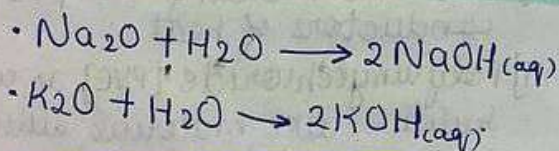 · Na2O + H2O ⟶ 2NaOH(aq)
· K2O + H2O ⟶ 2KOH(aq).